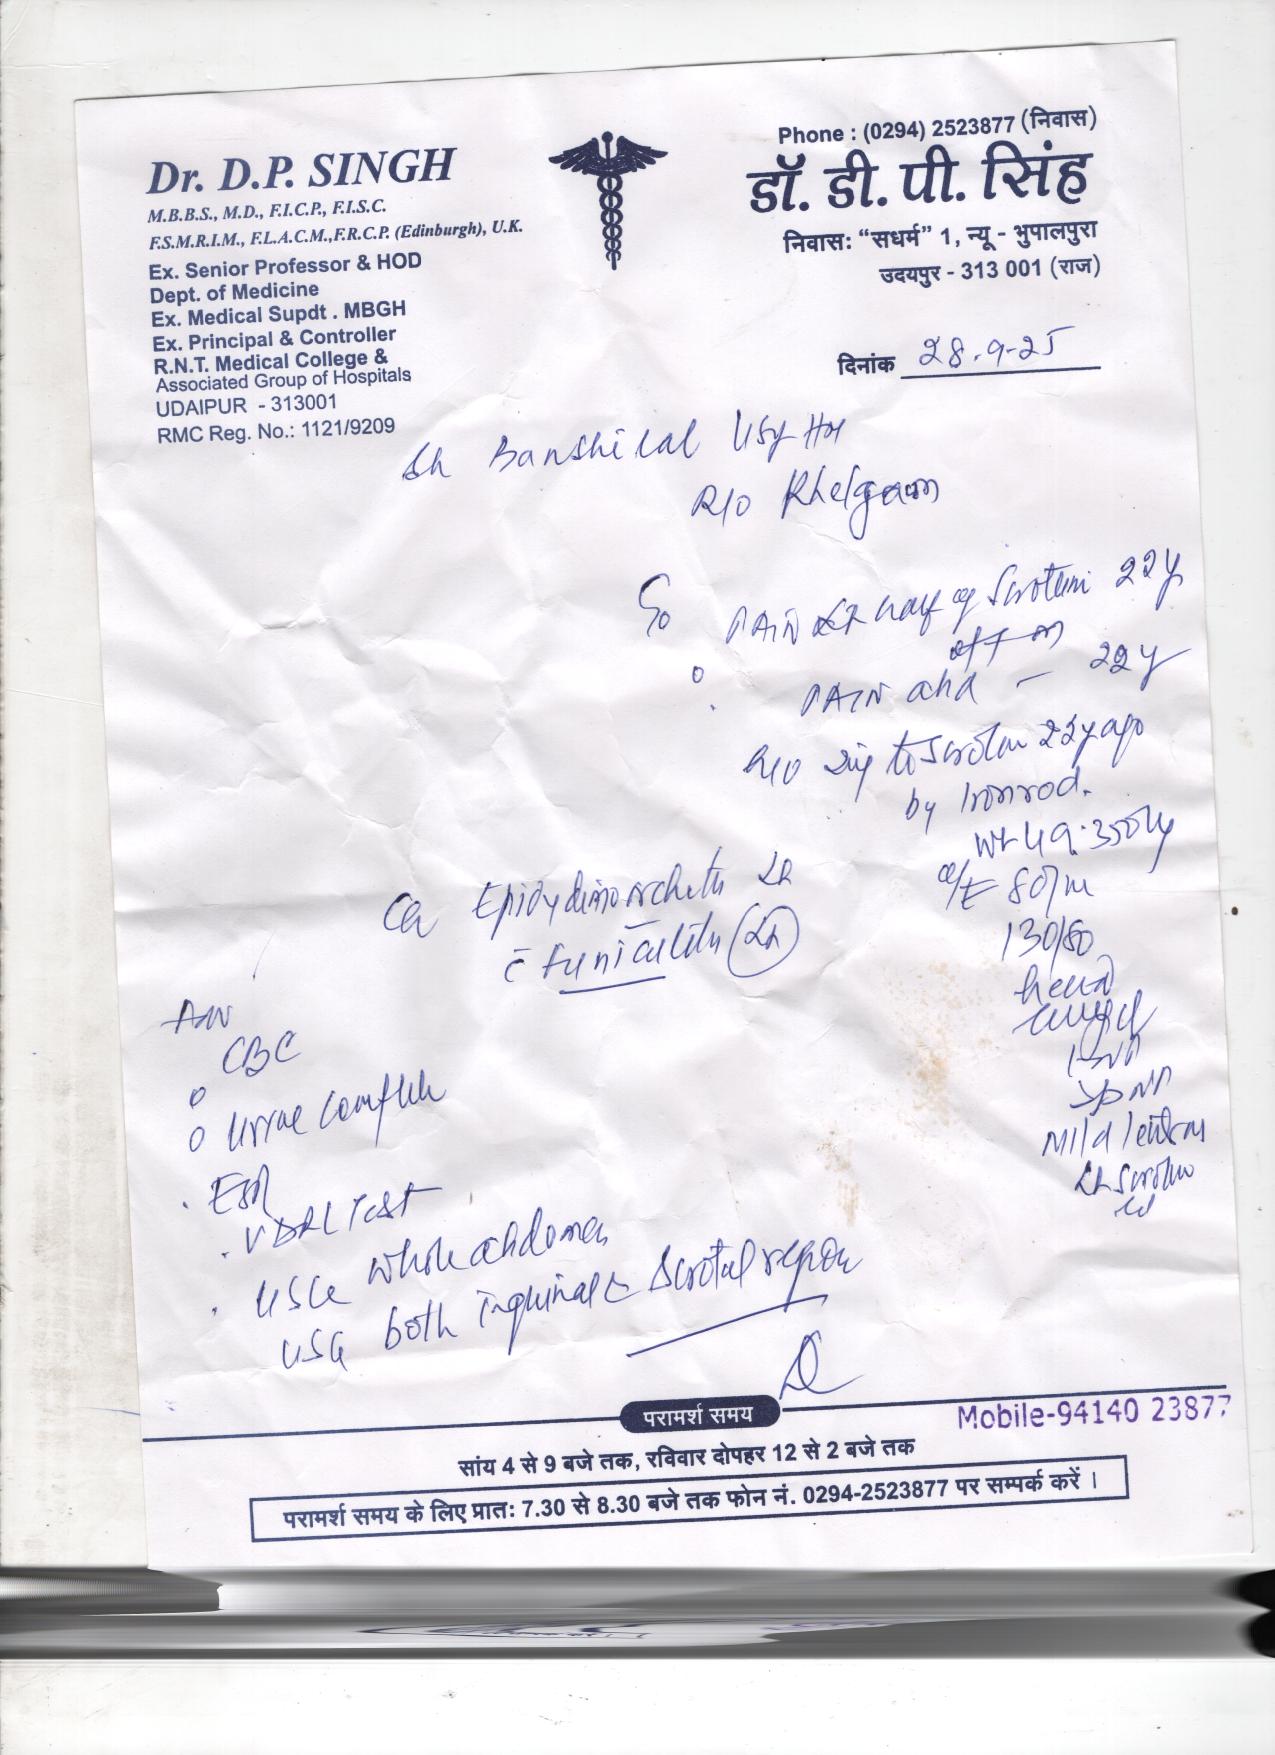 Dr. D.P. SINGH
M.B.B.S., M.D., F.I.C.P., F.I.S.C.
F.S.M.R.I.M., F.L.A.C.M.,F.R.C.P. (Edinburgh), U.K.
Ex. Senior Professor & HOD
Dept. of Medicine
Ex. Medical Supdt . MBGH
Ex. Principal & Controller
R.N.T. Medical College &
Associated Group of Hospitals
UDAIPUR - 313001
RMC Reg. No.: 1121/9209
Phone : (0294) 2523877 (निवास)
डॉ. डी. पी. सिंह
निवास: “सधर्म” 1, न्यू - भुपालपुरा
उदयपुर - 313 001 (राज)
दिनांक 28.9-25
Sh Banshilal
R/o Khelgaon
PAIN Lt half of Scrotum 22y
off on
PAIN abd - 22y
H/o Inj to Scrotum 22y ago
by Iron rod.
Wt 49.350kg
O/E 80/m
130/80
heart
lungs
Mild tenderness
Lt Scrotum
Epidydimoorchitis Lt
c Funiculitis (Lt)
Adv
CBC
Urine complete
ESR
VDRL Test
USG whole abdomen
USG both inguinal & Scrotal region
परामर्श समय
Mobile-94140 23877
सांय 4 से 9 बजे तक, रविवार दोपहर 12 से 2 बजे तक
परामर्श समय के लिए प्रातः 7.30 से 8.30 बजे तक फोन नं. 0294-2523877 पर सम्पर्क करें ।